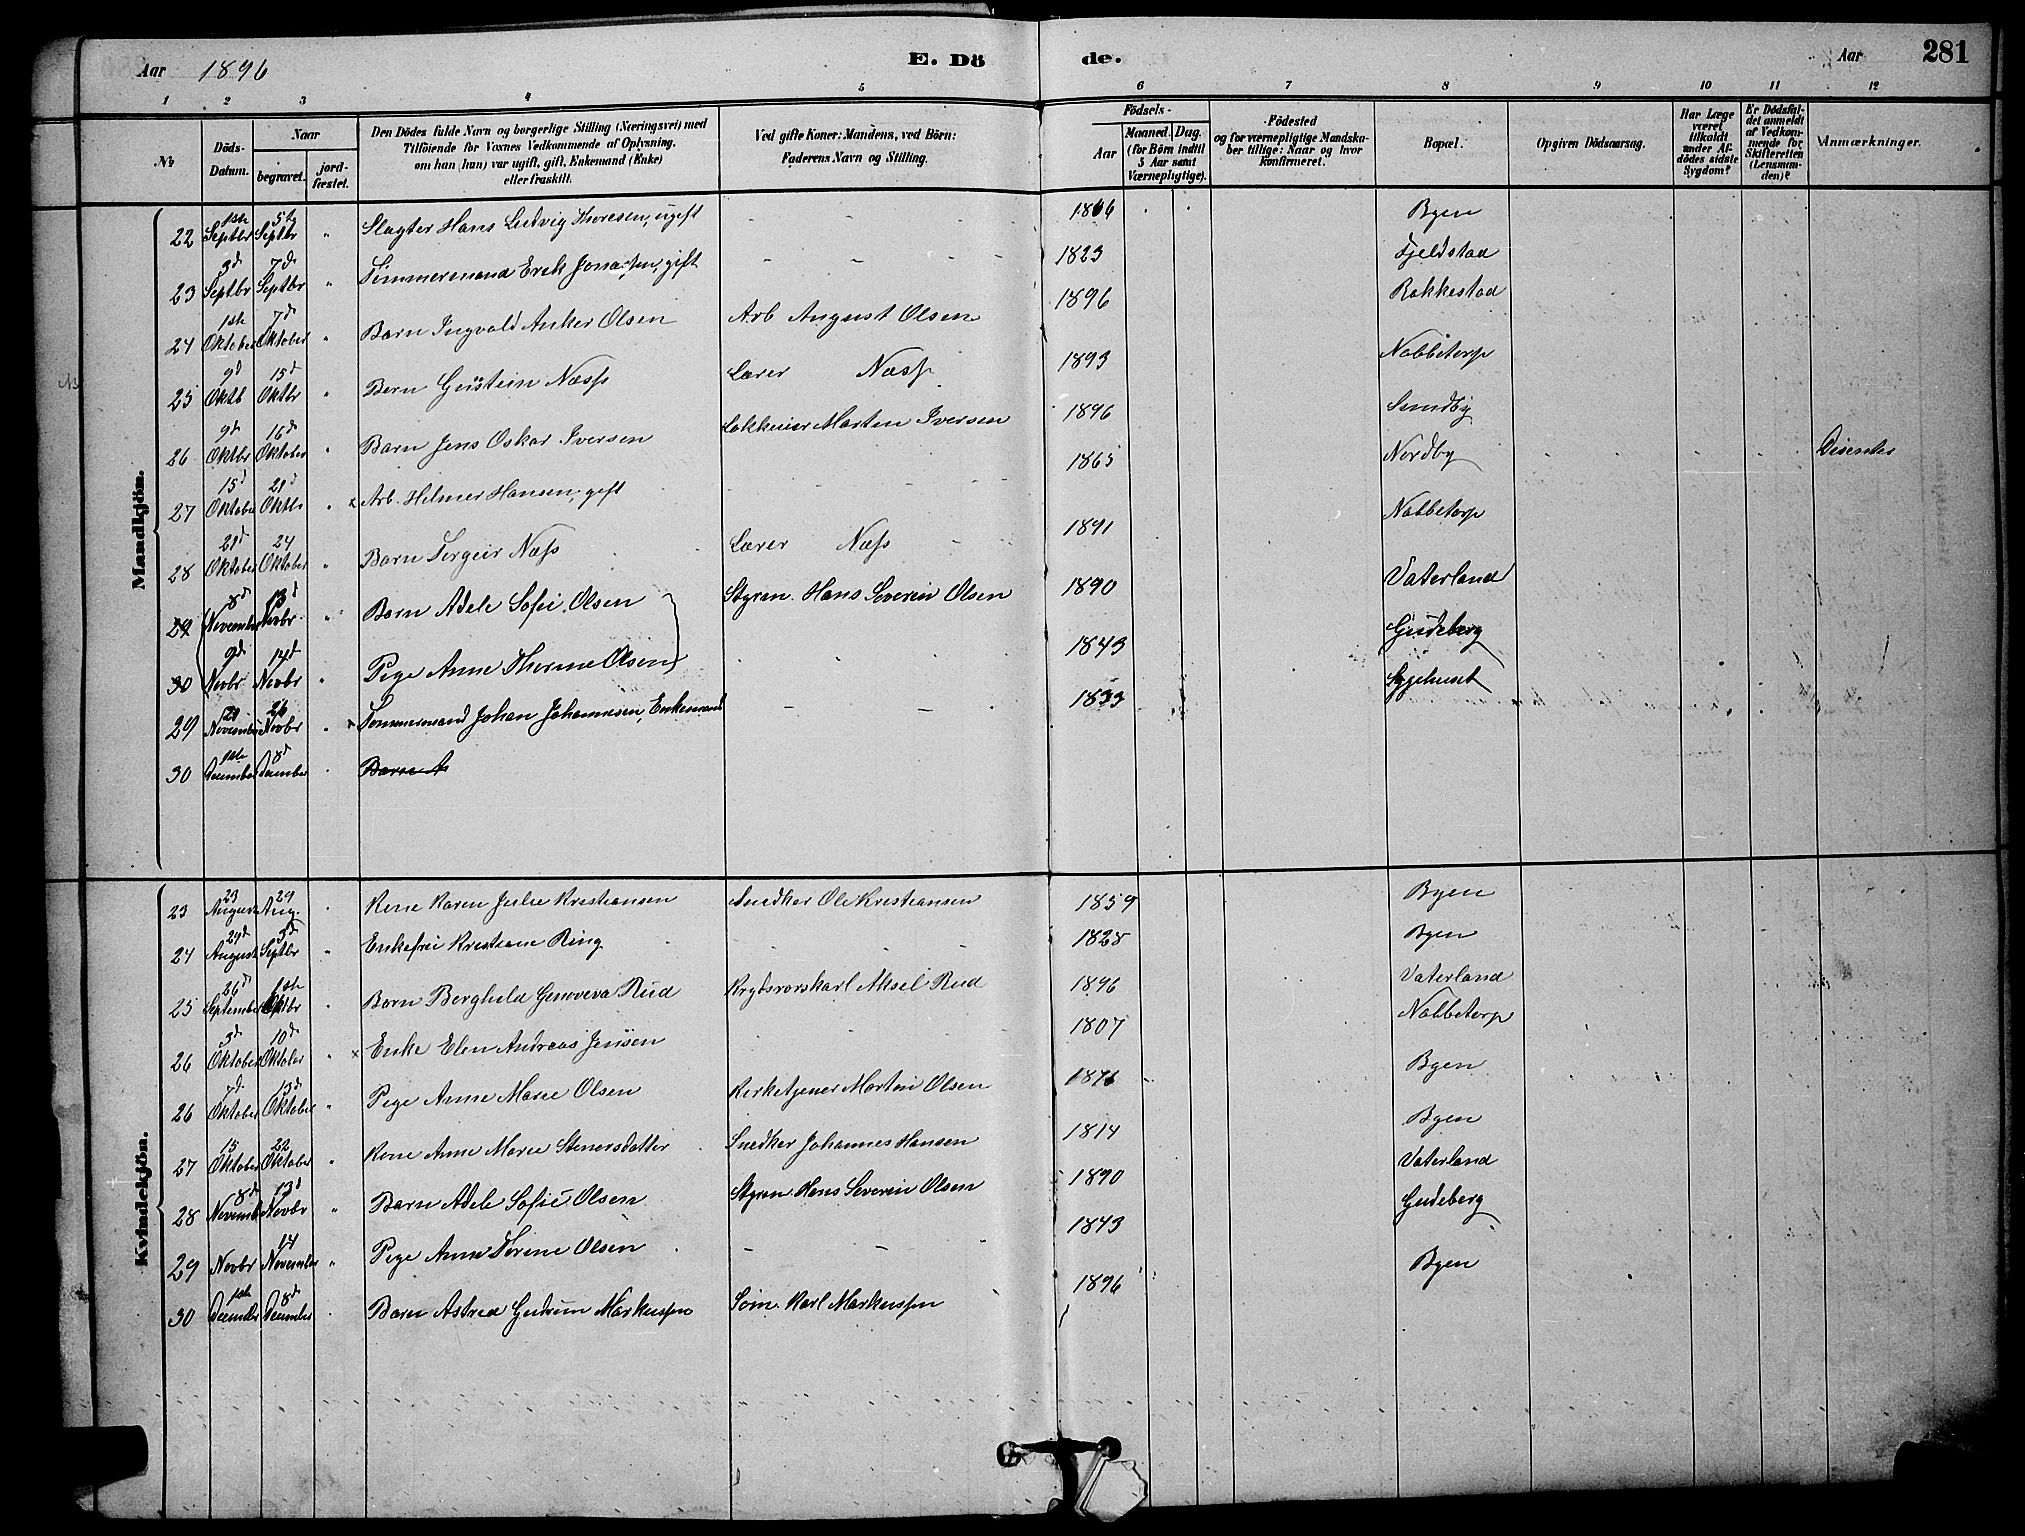 Aar 1896 E. Dö de. Aar 281
1 2 3 4 5 6 7 8 9 10 11 12
No
Döds-Datum.
Naar
begravet.
jord-fæstet.
Den Dödes fulde Navn og borgerlige Stilling (Næringsvei) med
Tilföiende for Voxnes Vedkommende af Oplysning,
om han (hun) var ugift, gift, Enkemand (Enke)
eller fraskilt.
Ved gifte Koner: Mandens, ved Börn:
Faderens Navn og Stilling.
Födsels-
Aar
Maaned. Dag.
(for Börn indtil
5 Aar samt
Værnepligtige).
Födested
og for værnepligtige Mandska-
ber tillige: Naar og hvor
Konfirmeret.
Bopæl.
Opgiven Dödsaarsag.
Har Læge
været
tilkaldt
under Af-
dödes sidste
Sygdom?
Er Dödsfal-
det anmeldt
af Vedkom-
mende for
Skifteretten
(Lensman-
den)?
Anmærkninger.
Mandkjön.
22 1ste Septbr 5te Septbr " Slagter Hans Ludvig Thoresen, ugift - - - 1866 Byen
23 3d Septbr 7d Septbr " Tømmermand Erik Jonassen, gift - - - - 1823 Fjeldstad
24 1ste Oktober 7d Oktober " Barn Ingvald Anker Olsen Arb August Olsen 1896 Rakkestad
25 9d Oktb 15d Oktbr " Barn Geistein Næss Lærer Næss 1893 Nabbetorp
26 9d Oktbr 16d Oktober " Barn Jens Oskar Iversen Martin Iversen 1896 Sundby
27 15d Oktober 21d Oktbr " x Arb. Helmer Hansen, gift - - - 1865 Nordby Disenter
28 21d Oktober 24 Oktober " Barn Torgeir Næss Lærer Næss - 1891 Nabbetorp
29 8d November 13d Novbr " Barn Adele Sofie Olsen Styrm. Hans Severin Olsen 1890 Vaterland
30 9d Novbr 14d Novbr " Pige Anne Thorine Olsen - - - 1843 Gudeberg
29 November 26 Novbr " x Tømmermand Johan Johannesen, Enkemand - - - 1833 Sygehuset
30 1ste December 8d December " Barn A
Kvindekjön.
23 23 August 29 Aug. " Kone Karen Julie Kristiansen Snedker Ole Kristiansen 1859 Byen
24 29d August 5d Septbr " Enkefru Kristiane Ring - - - 1828 Byen
25 26d September 1ste Oktbr " Barn Borghild Genoveva Rud Aksel Rud 1896 Vaterland
26 3d Oktober 10d Oktober " x Enke Elen Andreas Jensen - - - 1807 Nabbetorp
26 7d Oktober 13d Oktober " Pige Anne Marie Olsen Kirketjener Martin Olsen 1876 Byen
27 15 Oktober 22 Oktober " Kone Anne Marie Stenersdatter Snedker Johannes Hansen 1814 Byen
28 8d November 13d Novbr " Barn Adele Sofie Olsen Styrm. Hans Severin Olsen 1890 Vaterland
29 Novbr 14 November " Pige Anne Torine Olsen - - - 1843 Gudeberg
30 1ste December 8d December " Barn Astrid Gudrun Markussen Søm. Karl Markussen 1896 Byen